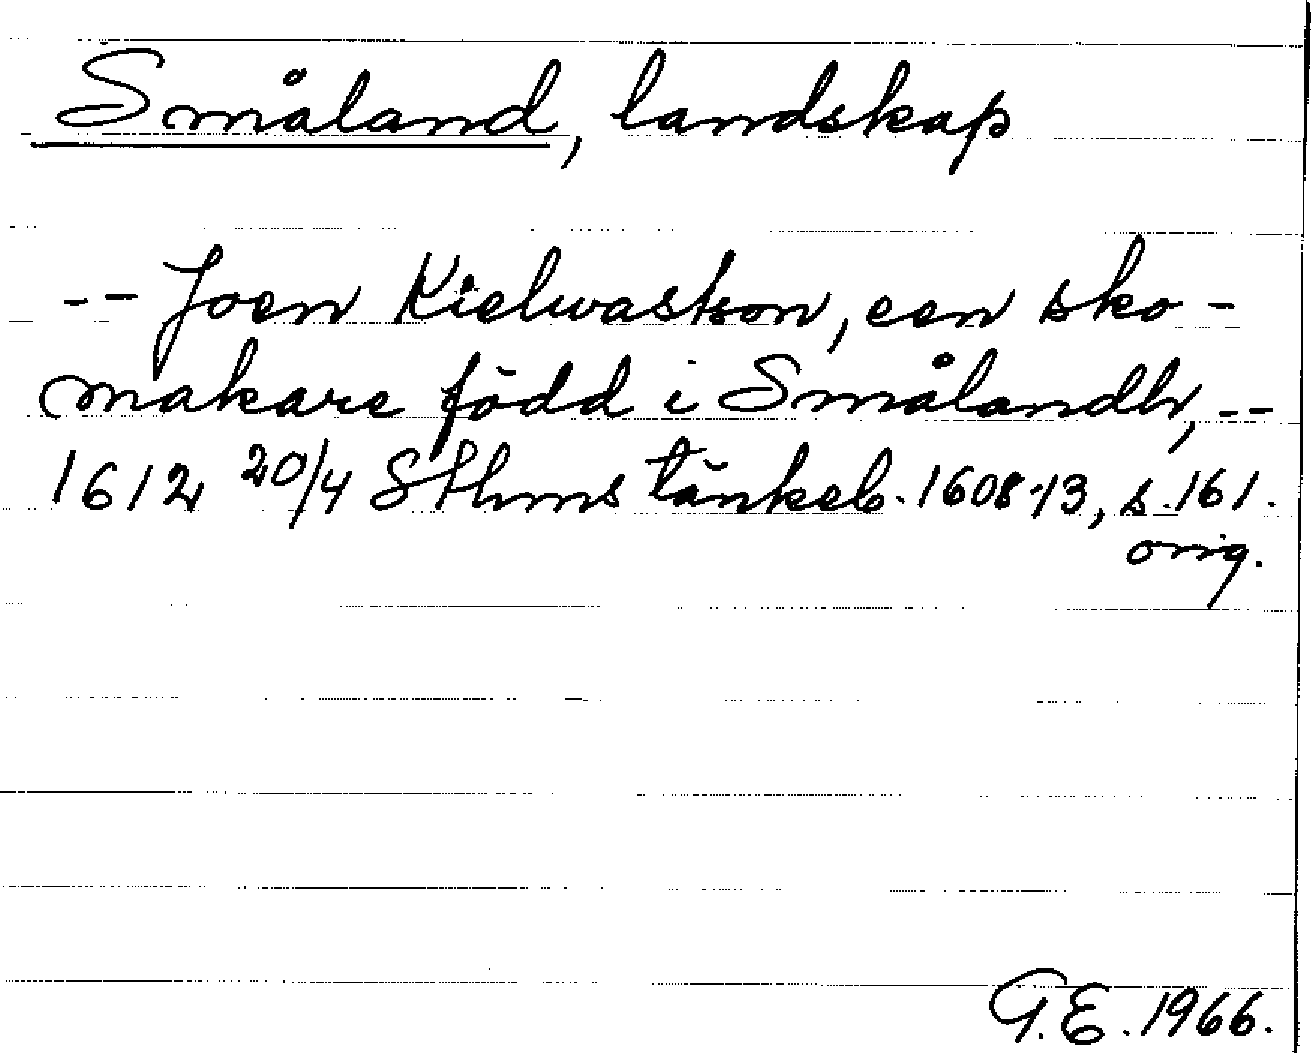 Småland, landskap
-- Joen Kielwastson, een sko-
makare född i Smålandh, --
1612 20/4 Sthms tänkeb. 1608-13, s. 161.
orig.
G.E. 1966.